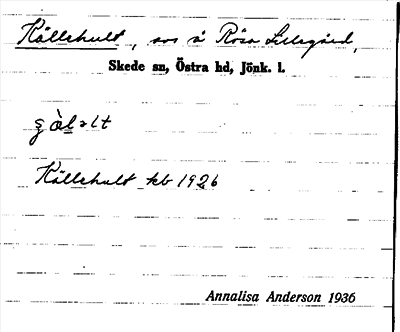 Källehult, sos å Rösa Lillegård,
Skede sn, Östra hd, Jönk. l.
Källehult kb 1926
Annalisa Anderson 1936